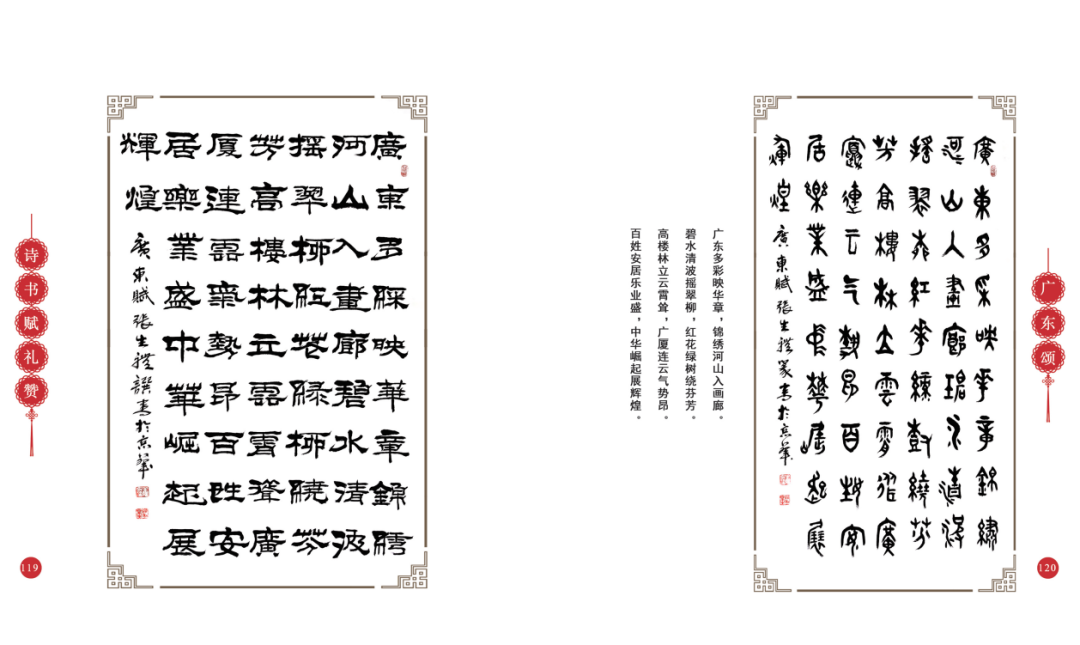 诗书赋礼赞
廣東多綵映華章錦繡
河山入畫廊碧水清波
摇翠柳紅花緑柳繞芬
芳高樓林立雲霄聳廣
厦連雲氣勢昂百姓安
居樂業盛中華崛起展
輝煌
廣東賦張生禮譔書於京華
119
广东多彩映华章，锦绣河山入画廊。
碧水清波摇翠柳，红花绿树绕芬芳。
高楼林立云霄耸，广厦连云气势昂。
百姓安居乐业盛，中华崛起展辉煌。
廣東多采映華章錦繡
河山入畫廊碧水清波
摇翠柳紅花綠樹繞芬
芳高樓林立雲霄聳廣
廈連云气勢昂百姓安
居樂業盛中華崛起展
輝煌
廣東賦張生禮篆書於京華
广东颂
120